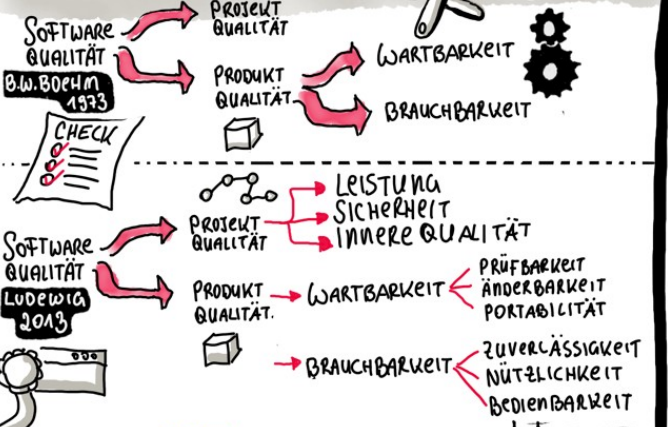 PROJEKT
QUALITÄT
SOFTWARE
QUALITÄT
B.W.BOEHM
1973
PRODUKT
QUALITÄT
WARTBARKEIT
BRAUCHBARKEIT
CHECK
SOFTWARE
QUALITÄT
LUDEWIG
2013
PROJEKT
QUALITÄT
LEISTUNG
SICHERHEIT
INNERE QUALITÄT
PRODUKT
QUALITÄT.
WARTBARKEIT
PRÜFBARKEIT
ÄNDERBARKEIT
PORTABILITÄT
BRAUCHBARKEIT
ZUVERLÄSSIGKEIT
NÜTZLICHKEIT
BEDIENBARKEIT